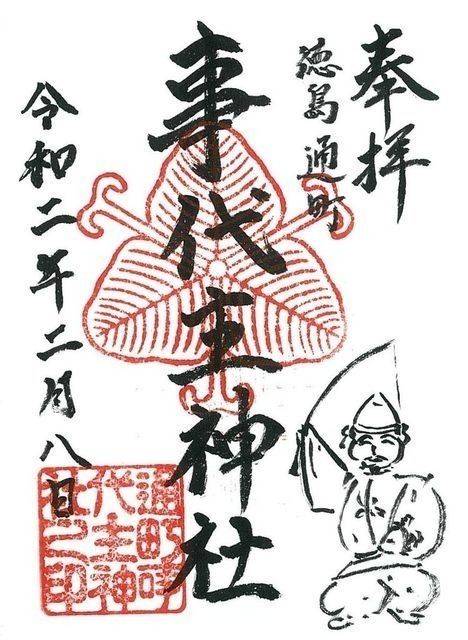 奉拝
徳島通町
事代主神社
令和二年二月八日
通町事
代主神
社之印